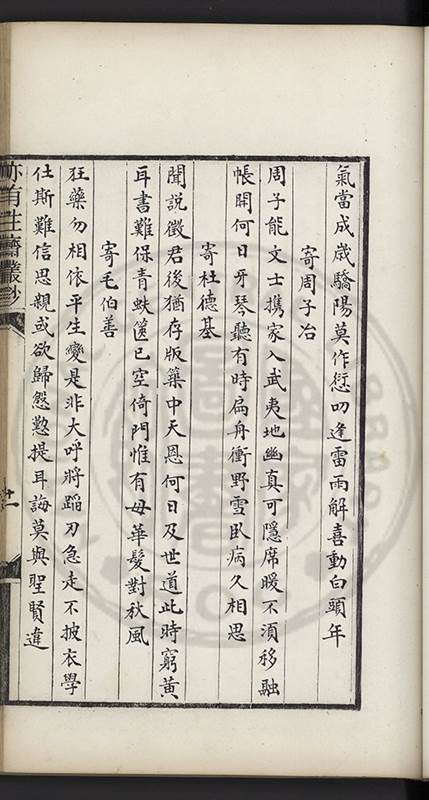 氣當成歲驕陽莫作愆叨逢雷雨解喜動白頭年
寄周子冶
周子能文士携家入武夷地幽真可隱席暖不須移融
帳開何日牙琴聽有時扁舟衝野雪臥病久相思
寄杜德基
聞説徵君後猶存版築中天恩何日及世道此時窮黃
耳書難保青蚨篋已空倚門惟有母華髮對秋風
寄毛伯善
狂藥勿相依平生變是非大呼將蹈刃急走不披衣學
仕斯難信思親或欲歸慇懃提耳誨莫與聖賢違
亦有生齋叢鈔